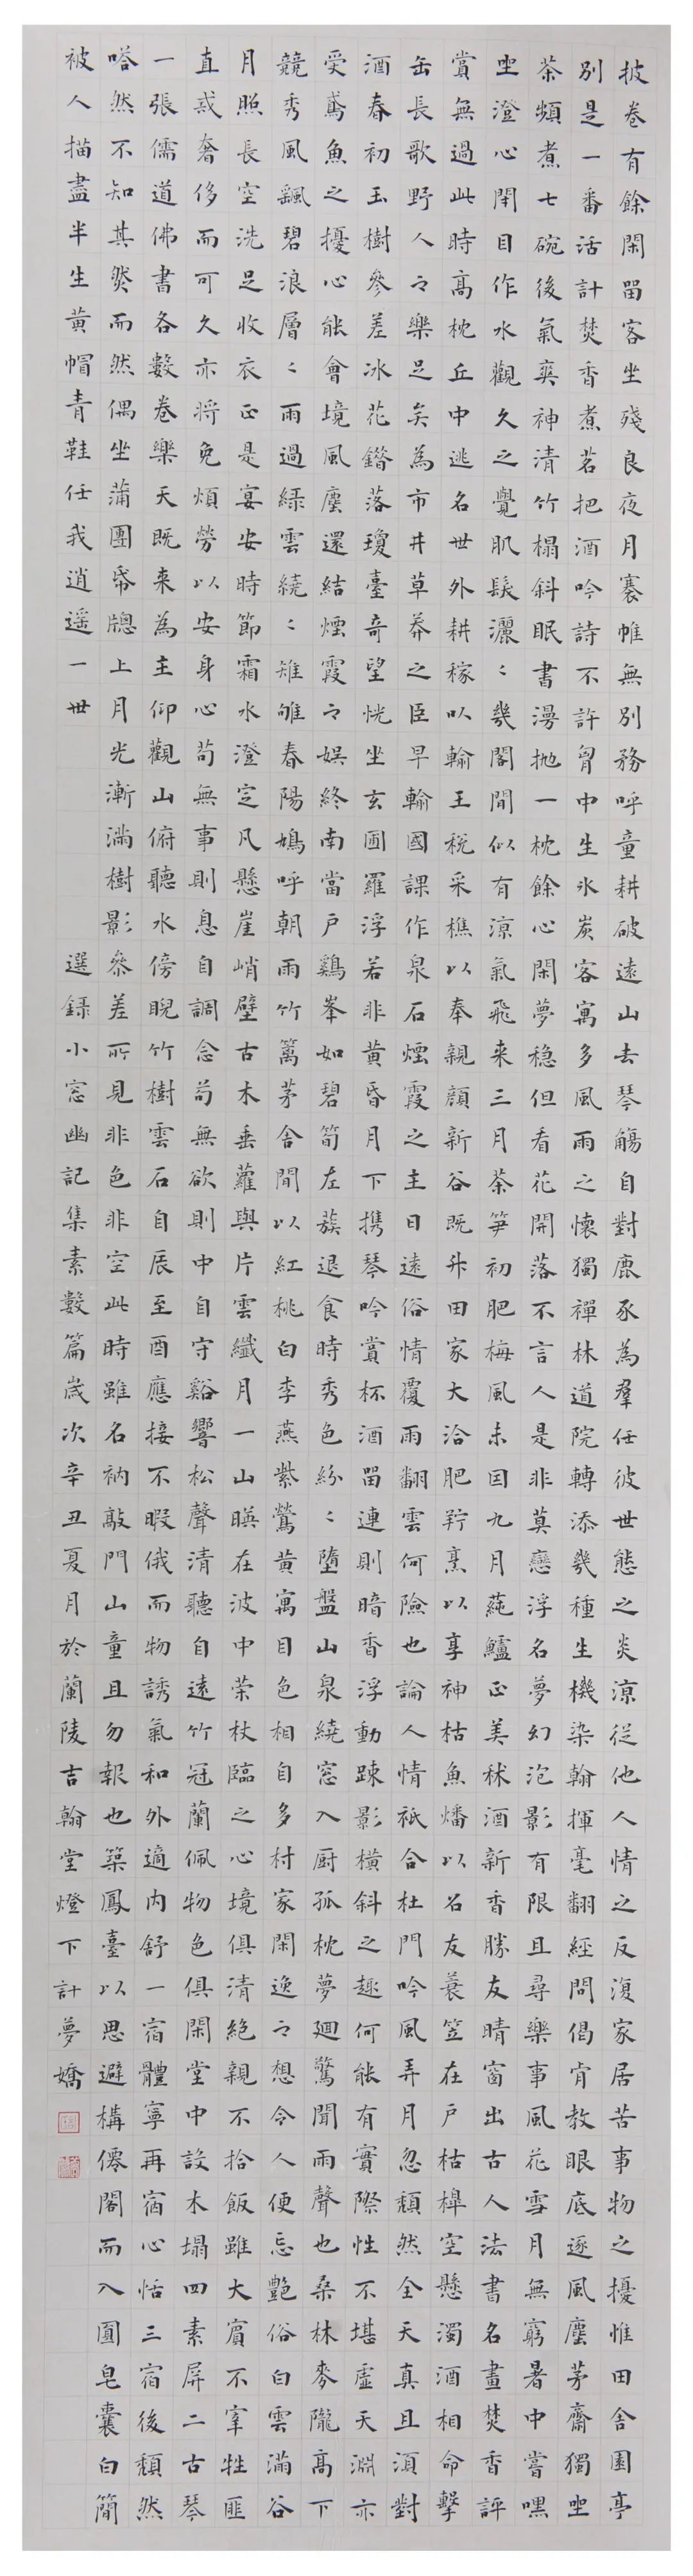 披卷有餘閑畱客坐殘良夜月褰帷無別務呼童耕破遠山去琴觴自對鹿豕為羣任彼世態之炎涼從他人情之反復家居苦事物之擾惟田舍園亭
別是一番活計焚香煮茗把酒吟詩不許胷中生氷炭客寓多風雨之懷獨禪林道院轉添幾種生機染翰揮毫翻經問偈肯教眼底逐風塵茅齋獨坐
茶頻煮七碗後氣爽神清竹榻斜眠書漫拋一枕餘心閑夢穩但看花開落不言人是非莫戀浮名夢幻泡影有限且尋樂事風花雪月無窮暑中嘗嘿
坐澄心閉目作水觀久之覺肌髮灑〻幾閣間似有涼氣飛来三月茶筍初肥梅風未囙九月蒓鱸正美秫酒新香勝友晴窗出古人法書名畫焚香評
賞無過此時高枕丘中逃名世外耕稼以輸王稅采樵以奉親顏新谷既升田家大洽肥羜烹以享神枯魚燔以名友蓑笠在戶枯槔空懸濁酒相命擊
缶長歌野人之樂足矣為市井草莽之臣早輸國課作泉石煙霞之主日遠俗情覆雨翻雲何險也論人情祇合杜門吟風弄月忽頹然全天真且湏對
酒春初玉樹參差冰花錯落瓊臺奇望恍坐玄圃羅浮若非黃昏月下携琴吟賞杯酒畱連則暗香浮動踈影橫斜之趣何能有實際性不堪虛天淵亦
受鳶魚之擾心能會境風塵還結煙霞之娛終南當戶鷄峯如碧筍左蔟退食時秀色紛〻墮盤山泉繞窓入厨孤枕夢廻驚聞雨聲也桑林麥隴高下
競秀風飄碧浪層〻雨過綠雲繞〻雉雊春陽鳩呼朝雨竹籬茅舍間以紅桃白李燕紫鶯黃寓目色相自多村家閑逸之想令人便忘艷俗白雲滿谷
月照長空洗足收衣正是宴安時節霜水澄定凡懸崖峭壁古木垂蘿與片雲纖月一山暎在波中䇿杖臨之心境俱清絕親不拾飯雖大賓不宰牲匪
直戒奢侈而可久亦將免煩勞以安身心苟無事則息自調念苟無欲則中自守谿響松聲清聽自遠竹冠蘭佩物色俱閑堂中設木塌四素屏二古琴
一張儒道佛書各數卷樂天既来為主仰觀山俯聽水傍睨竹樹雲石自辰至酉應接不暇俄而物誘氣和外適內舒一宿體寧再宿心恬三宿後頹然
嗒然不知其然而然偶坐蒲團帋牕上月光漸滿樹影參差所見非色非空此時雖名衲敲門山童且勿報也築鳳臺以思避構僊閣而入圓皂囊白簡
被人描盡半生黃帽青鞋任我逍遥一世
選録小窓幽記集素數篇歲次辛丑夏月於蘭陵吉翰堂燈下計夢嬌